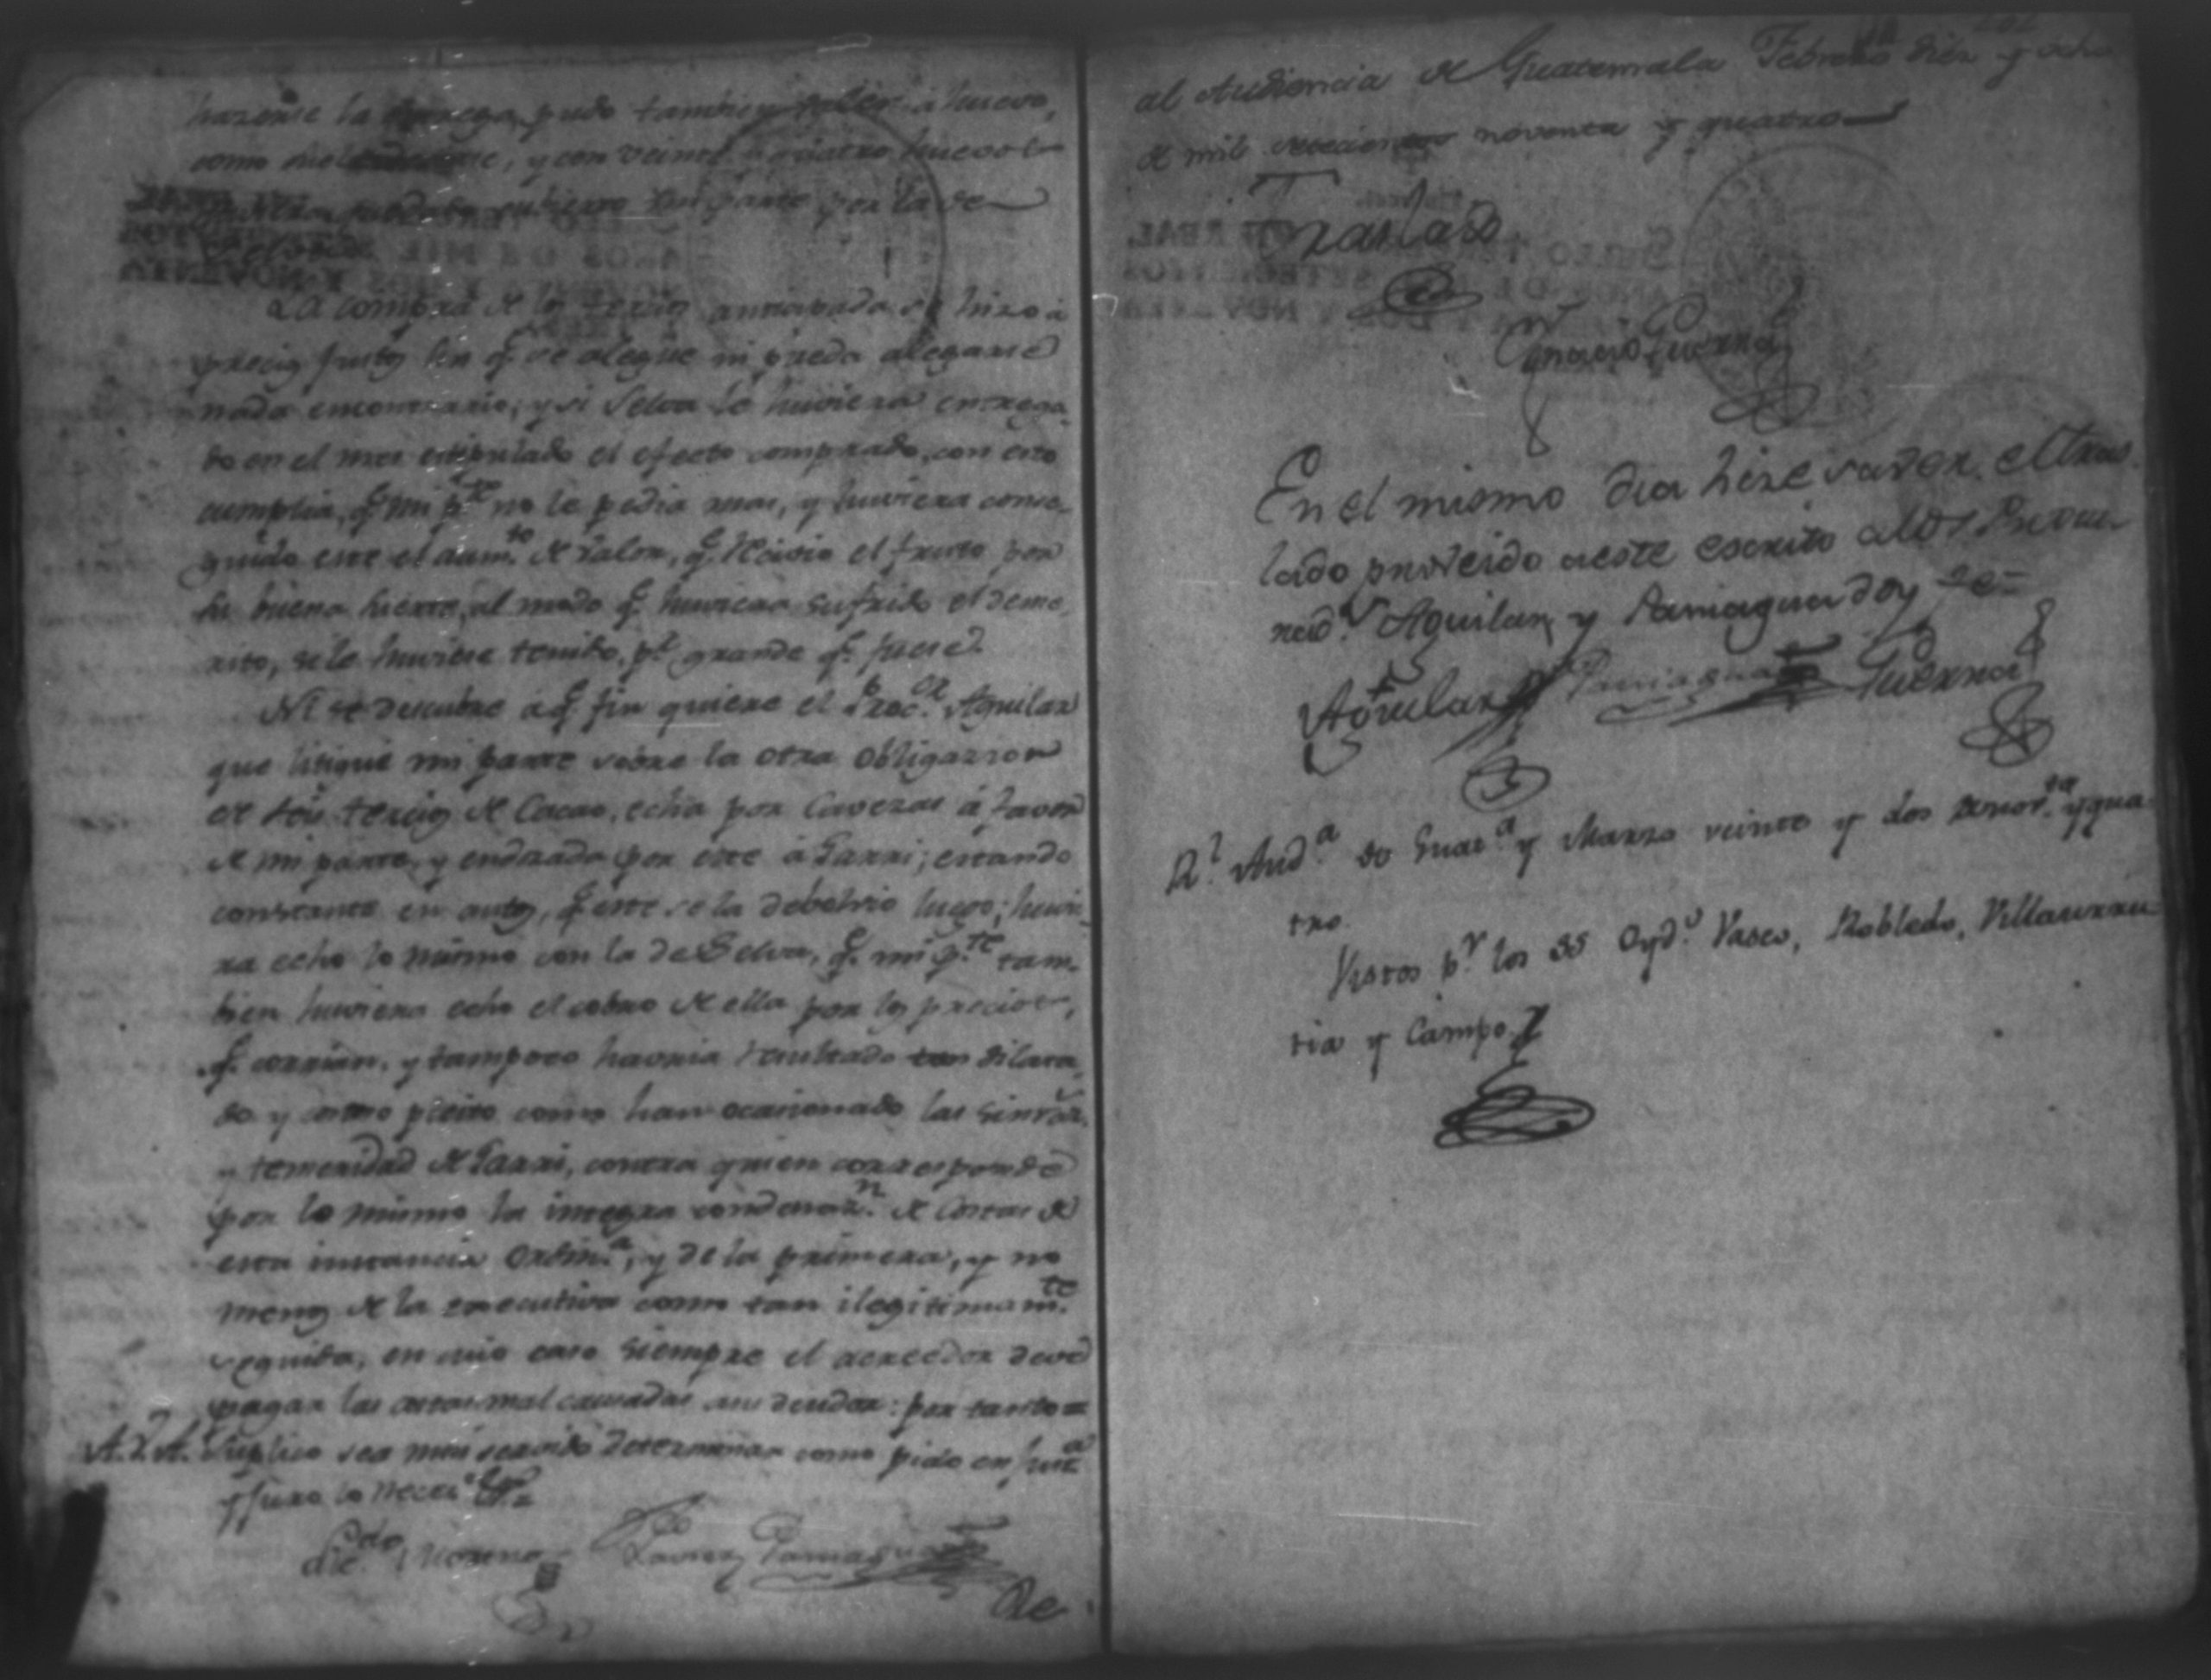 hazerse la entrega, pudo tambien valer á huevo,
como mel, y con veinte y quatro huevos
mi parte por la de
La compra de los tercios anticipada se hizo á
precios justos sin q.e se alegue ni pueda alegarse
nada encontrario; y si Selva le huviera entrega
do en el mes estipulado el efecto comprado, con esto
cumplia, q.e mi p.te no le pedia mas, y huviera conse
guido este el aum.to de valor, q.e recivio el fruto por
su buena suerte, al modo q.e huviera sufrido el deme
rito, si lo huviese tenido, p.r grande q.e fuese.
Ni se descubre áq.e fin quiere el Proc.or Aguilar
que litigue mi parte sobre la otra obligazion
de seis tercios de Cacao, echa por Cavezas á favor
de mi parte, y endosada por este á Yarri; estando
constante en autos, q.e este se la debolvio luego; huvie
ra echo lo mismo con la de Selva, q.e mi p.te tam
bien huviera echo el cobro de ella por los precios,
q.e corrian, y tampoco havria resultado tan dilata
do y costoso pleito como han ocasionado las sinraz.s
y temeridad de Yarri, contra quien corresponde
por lo mismo la integra condenaz.n de Costas de
esta instancia Ordin.a, y de la primera, y no
menos de la executiva como tan ilegitimam.te
seguida, en cuio caso siempre el acreedor deve
pagar las costas mal causadas asu deudor: por tanto =
A.V.A. Suplico sea mui servido determinar como pido en just.a
y juro lo neces.o
Lic.do Moreno Fco Xavier Paniagua
Re
al Audiencia de Guatemala Febrero diez y ocho
de mil setecientos noventa y quatro
Traslado
Ignacio Guerra
En el mismo dia hize saver el tras
lado proveido aeste escrito alos Procu
rad.s Aguilar y Paniagua doy fee =
Aguilar Paniagua Guerra
R.l Aud.a de Guat.a y Marzo veinte y dos de nov.ta y qua
tro.
Vistos p.r los SS Oyd.s Vasco, Robledo, Villaurru
tia y Campo